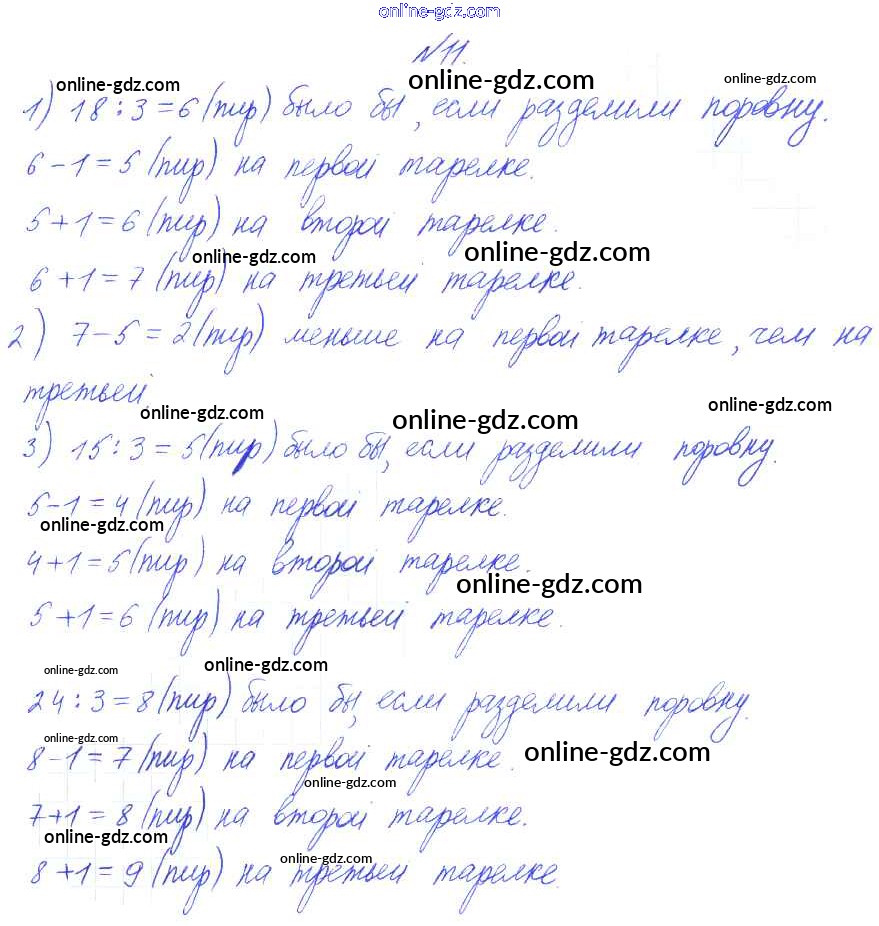 online-gdz.com
№11.
online-gdz.com online-gdz.com online-gdz.com
1) 18 : 3 = 6 (пир) было бы, если разделили поровну.
6 - 1 = 5 (пир) на первой тарелке.
5 + 1 = 6 (пир) на второй тарелке.
online-gdz.com online-gdz.com
6 + 1 = 7 (пир) на третьей тарелке.
2) 7 - 5 = 2 (пир) меньше на первой тарелке, чем на
третьей.
online-gdz.com online-gdz.com online-gdz.com
3) 15 : 3 = 5 (пир) было бы, если разделили поровну.
5 - 1 = 4 (пир) на первой тарелке.
online-gdz.com
4 + 1 = 5 (пир) на второй тарелке.
online-gdz.com
5 + 1 = 6 (пир) на третьей тарелке.
online-gdz.com online-gdz.com
24 : 3 = 8 (пир) было бы, если разделили поровну.
online-gdz.com
8 - 1 = 7 (пир) на первой тарелке.
online-gdz.com
online-gdz.com
7 + 1 = 8 (пир) на второй тарелке.
online-gdz.com
online-gdz.com
8 + 1 = 9 (пир) на третьей тарелке.